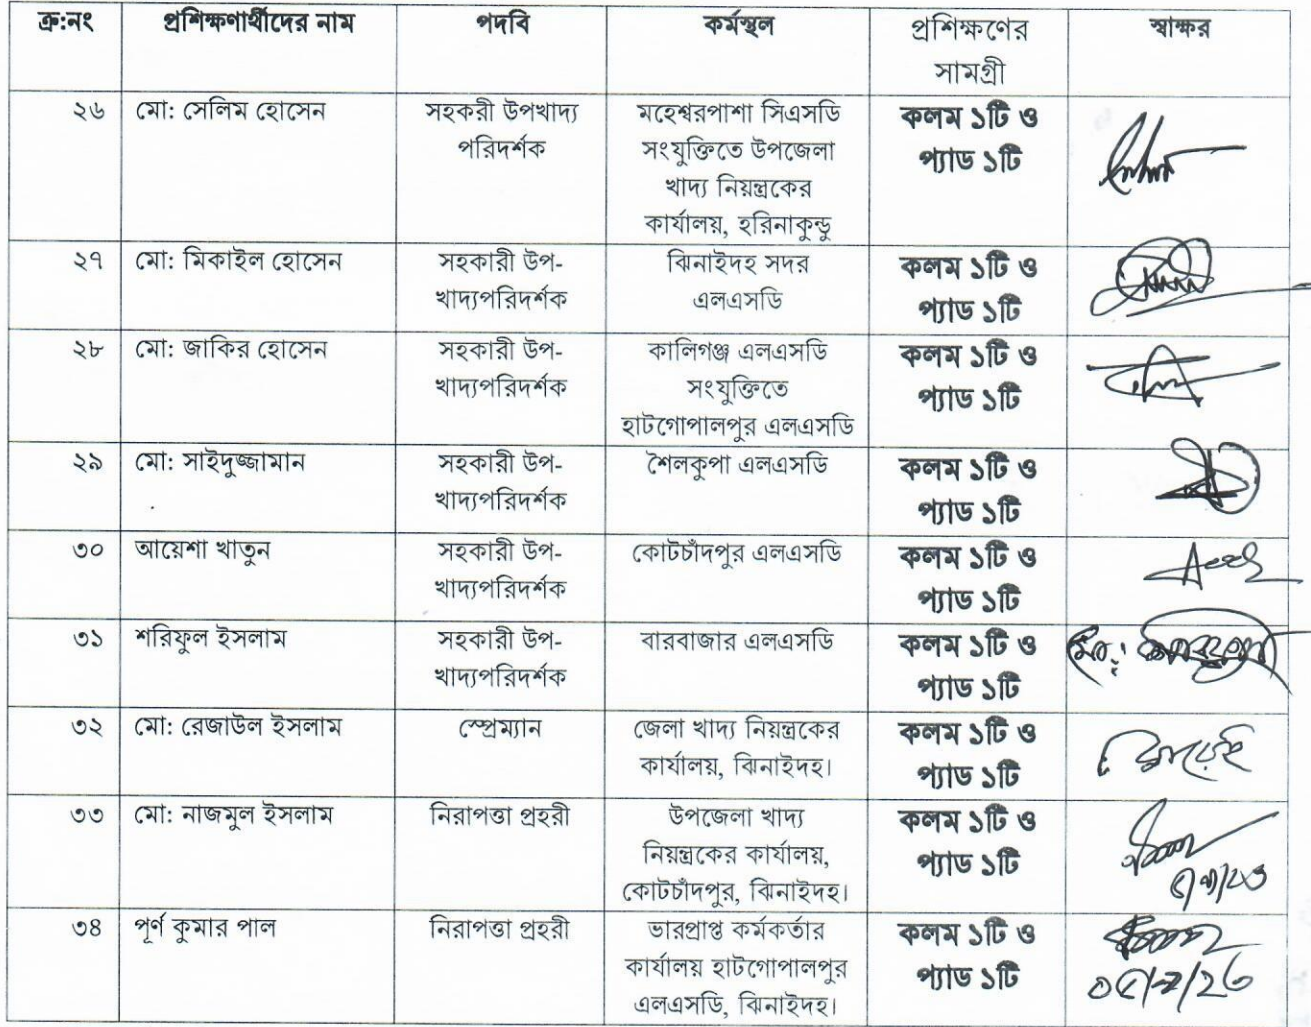 ক্র:নং প্রশিক্ষণার্থীদের নাম পদবি কর্মস্থল প্রশিক্ষণের সামগ্রী স্বাক্ষর
২৬ মো: সেলিম হোসেন সহকরী উপখাদ্য পরিদর্শক মহেশ্বরপাশা সিএসডি সংযুক্তিতে উপজেলা খাদ্য নিয়ন্ত্রকের কার্যালয়, হরিনাকুন্ডু কলম ১টি ও প্যাড ১টি
২৭ মো: মিকাইল হোসেন সহকারী উপ-খাদ্যপরিদর্শক ঝিনাইদহ সদর এলএসডি কলম ১টি ও প্যাড ১টি
২৮ মো: জাকির হোসেন সহকারী উপ-খাদ্যপরিদর্শক কালিগঞ্জ এলএসডি সংযুক্তিতে হাটগোপালপুর এলএসডি কলম ১টি ও প্যাড ১টি
২৯ মো: সাইদুজ্জামান সহকারী উপ-খাদ্যপরিদর্শক শৈলকুপা এলএসডি কলম ১টি ও প্যাড ১টি
৩০ আয়েশা খাতুন সহকারী উপ-খাদ্যপরিদর্শক কোটচাঁদপুর এলএসডি কলম ১টি ও প্যাড ১টি
৩১ শরিফুল ইসলাম সহকারী উপ-খাদ্যপরিদর্শক বারবাজার এলএসডি কলম ১টি ও প্যাড ১টি
৩২ মো: রেজাউল ইসলাম স্প্রেম্যান জেলা খাদ্য নিয়ন্ত্রকের কার্যালয়, ঝিনাইদহ। কলম ১টি ও প্যাড ১টি
৩৩ মো: নাজমুল ইসলাম নিরাপত্তা প্রহরী উপজেলা খাদ্য নিয়ন্ত্রকের কার্যালয়, কোটচাঁদপুর, ঝিনাইদহ। কলম ১টি ও প্যাড ১টি
৩৪ পূর্ণ কুমার পাল নিরাপত্তা প্রহরী ভারপ্রাপ্ত কর্মকর্তার কার্যালয় হাটগোপালপুর এলএসডি, ঝিনাইদহ। কলম ১টি ও প্যাড ১টি